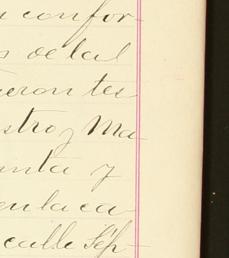 n confor-
s de la l
ueron tes
stro, y Ma
unta y
en la ca
calle Sép-